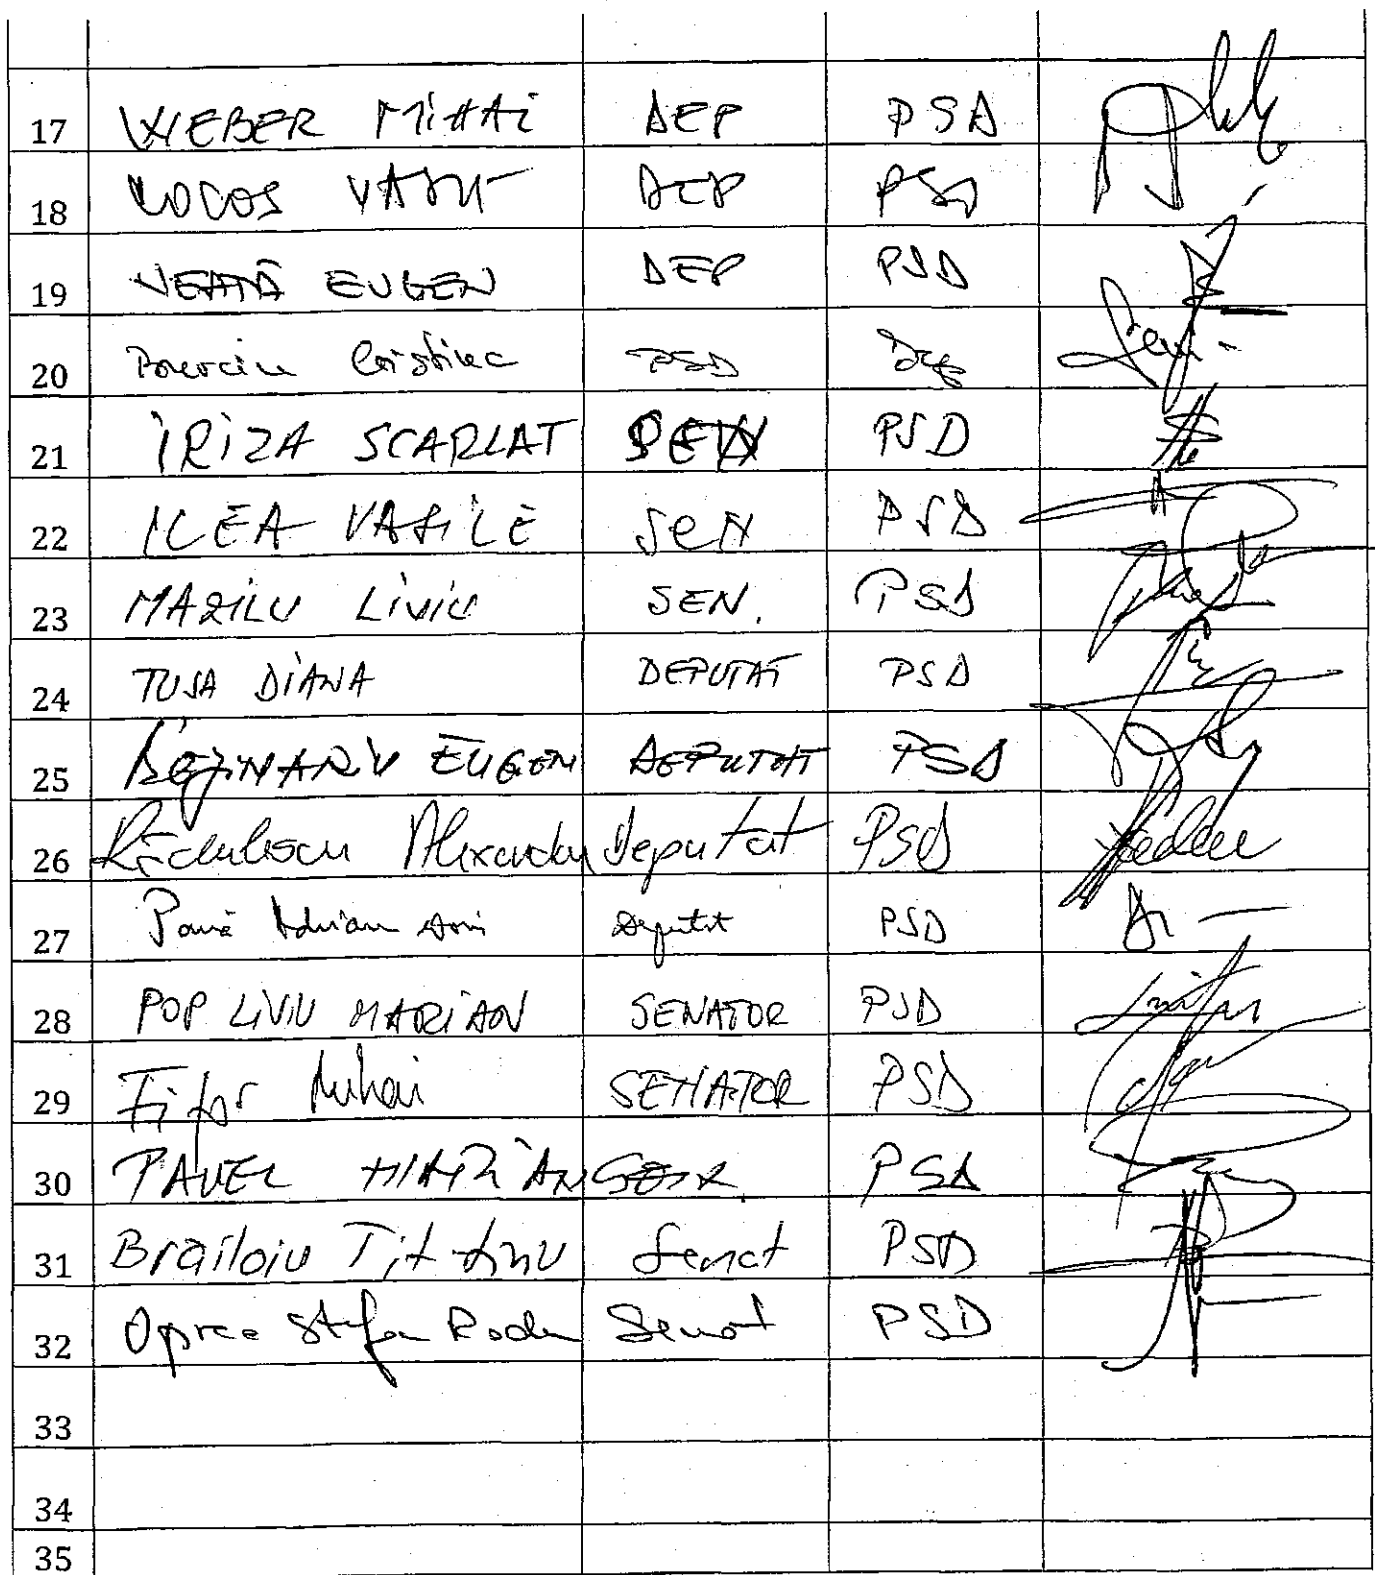 17 WEBER MIHAI DEP PSD
18 COCOS VASILE DEP PSD
19 EUGEN DEP PSD
20 Cristina PSD Dep
21 IRIZA SCARLAT SEN PSD
22 ILEA VASILE SEN PSD
23 MAZILU LIVIU SEN. PSD
24 TUSA DIANA DEPUTAT PSD
25 BEJINARIU EUGEN DEPUTAT PSD
26 Rădulescu Alexandru deputat PSD
27 Pană Adrian Deputat PSD
28 POP LIVIU MARIAN SENATOR PSD
29 Fifor Mihai SENATOR PSD
30 PAVEL MARIAN PSD
31 Brailoiu Tit Liviu Senat PSD
32 Oprea Stefan Radu Senat PSD
33
34
35